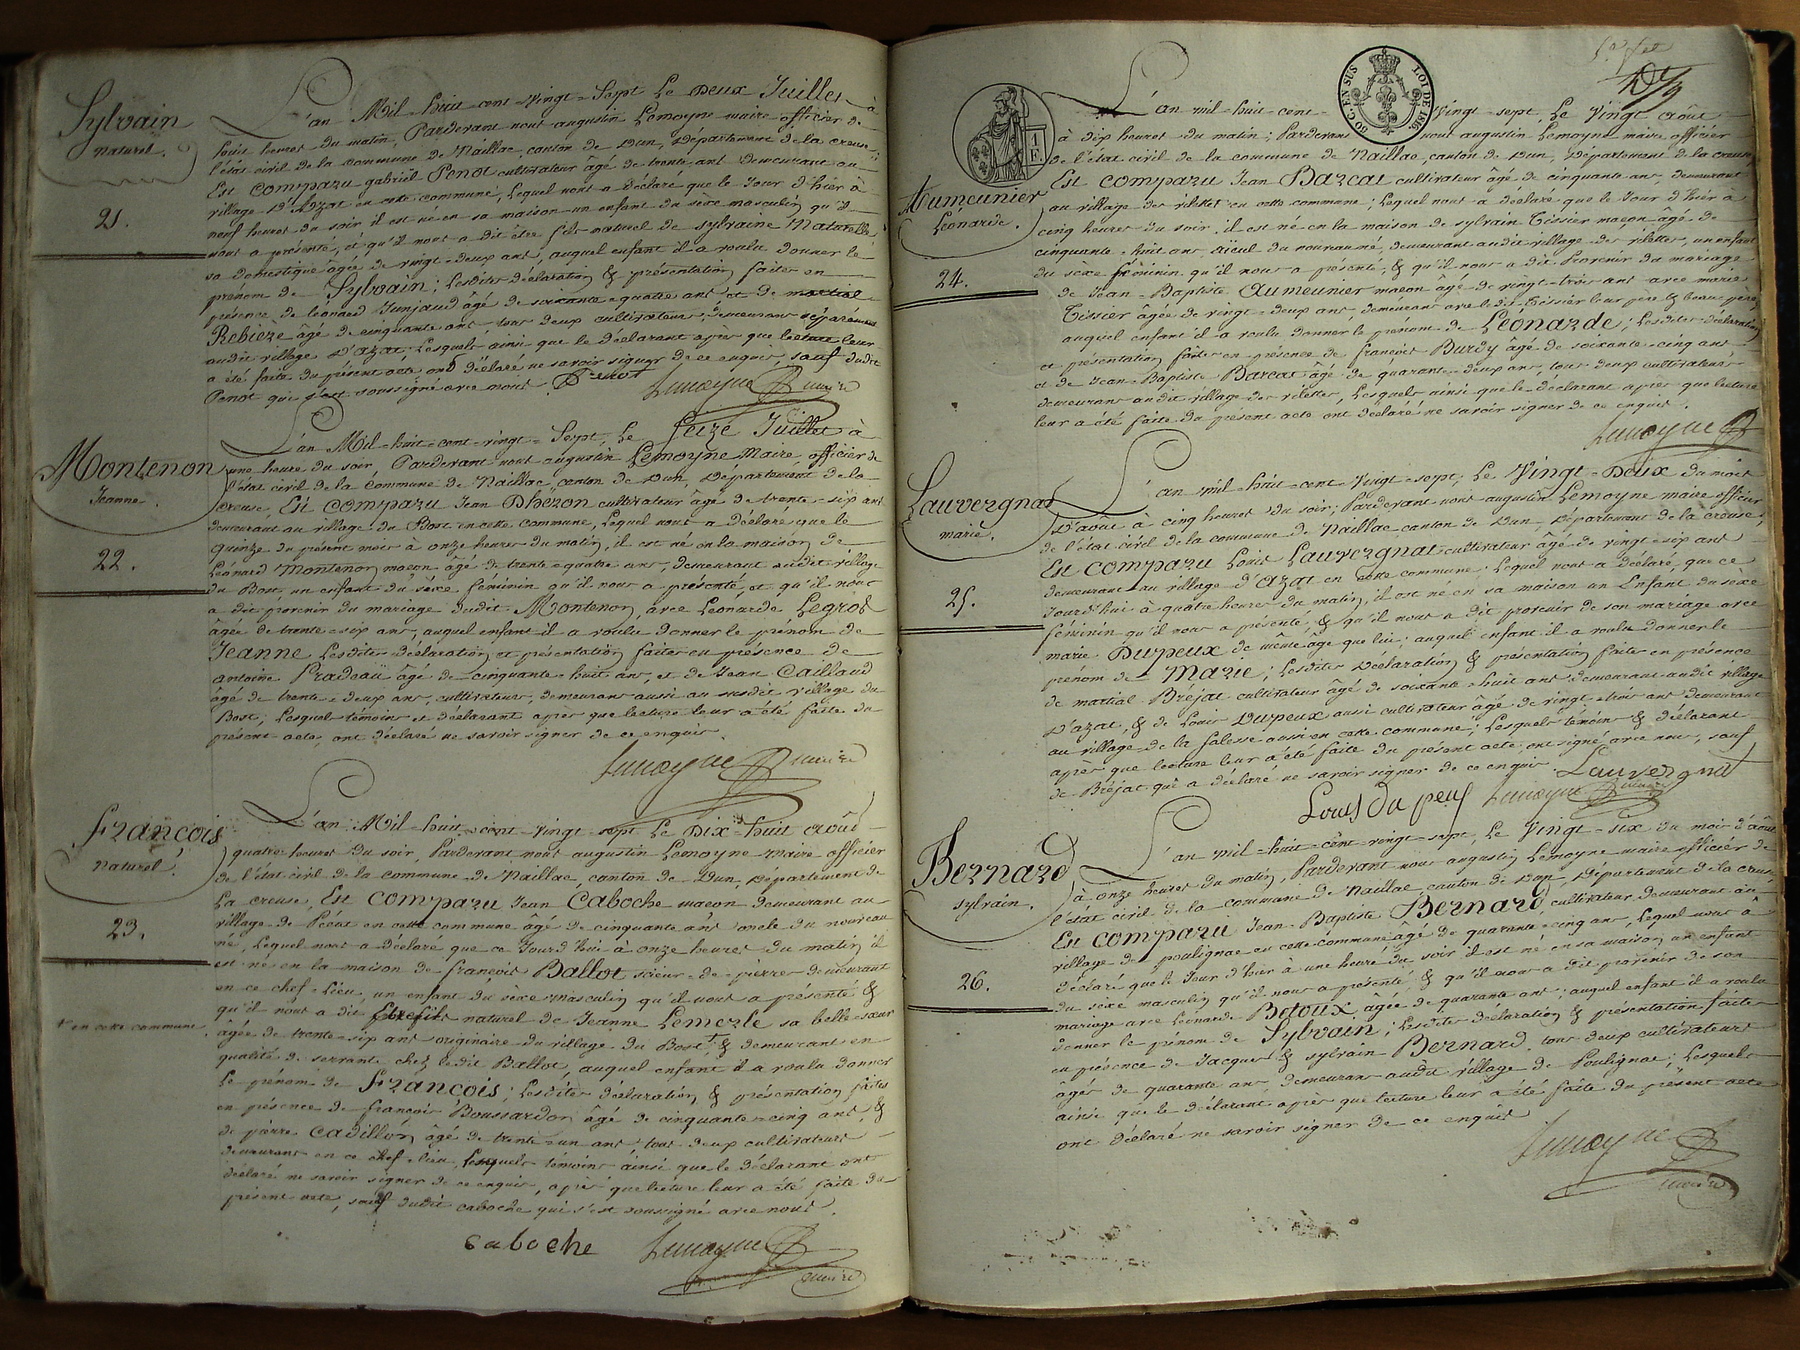 Sylvain
naturel.
21.
L'an Mil-huit-cent-vingt-Sept Le Deux Juillet à
huit heures du matin, Pardevant nous augustin Lemoyne maire officier de
l'état civil de la commune de Naillac, canton de Dun, Département de la creuse;
Est comparu gabriel Penot cultivateur âgé de trente ans demeurant au
village D'Azat en cette commune, Lequel nous a déclaré que le Jour d'hier à
neuf heures du soir il est né en sa maison un enfant du sexe masculin qu'il
nous a présenté, et qu'il nous a dit être fils naturel de sylvaine Naturelle
sa domestique âgée de vingt-deux ans, auquel enfant il a voulu donner le
prénom de Sylvain; Lesdites déclaration & présentation faites en
présence de léonard Junjaud âgé de soixante-quatre ans et de martial
Rebieze âgé de cinquante ans tous deux cultivateurs, demeurans séparément
audit village D'azat; Lesquels ainsi que le déclarant après que lecture leur
a été faite du présent acte ont déclaré ne savoir signer de ce enquis, sauf dudit
Penot qui s'est soussigné avec nous. Penot Lemoyne maire
Montenon
Jeanne.
22.
L'an Mil-huit-cent-vingt-Sept, Le Seize Juillet à
une heure du soir, Pardevant nous augustin Lemoyne Maire officier de
l'état civil de la Commune de Naillac, canton de Dun, Département de la
creuse, Est comparu Jean Dhezon cultivateur âgé de trente-six ans
demeurant au village du Bost en cette commune, Lequel nous a déclaré que le
quinze du présent mois à onze heures du matin, il est né en la maison de
Léonard Montenon maçon âgé de trente-quatre ans, demeurant audit village
du Bost, un enfant du sexe féminin qu'il nous a présenté, et qu'il nous
a dit provenir du mariage dudit Montenon, avec Léonarde Legros
âgée de trente-six ans, auquel enfant il a voulu donner le prénom de
Jeanne, Lesdites déclaration et présentation faites en présence de
antoine Pradeau âgé de cinquante-huit ans, et de Jean Caillaud
âgé de trente-deux ans, cultivateurs, demeurans aussi au susdit village du
Bost, Lesquels témoins et déclarant après que lecture leur a été faite du
présent acte, ont déclaré ne savoir signer de ce enquis.
Lemoyne maire
François
naturel.
23.
L'an Mil-huit-cent-vingt-sept Le Dix-huit août
quatre heures du soir, Pardevant nous augustin Lemoyne maire officier
de l'état civil de la commune de Naillac, canton de Dun, Département de
La creuse, Est comparu Jean Caboche maçon demeurant au
village de en cette commune âgé de cinquante ans oncle du nouveau
né, Lequel nous a déclaré que ce Jourd'hui à onze heures du matin il
est né en la maison de françois Ballot scieur-de-pierres demeurant
en ce chef-lieu, un enfant du sexe masculin qu'il nous a présenté &
qu'il nous a dit Etre fils naturel de Jeanne Lemerle sa belle-sœur
+ en cette commune.
âgée de trente-six ans originaire du village du Bost + & demeurant en
qualité de servante chez ledit Ballot, auquel enfant il a voulu donner
Le prénom de François; Lesdites déclaration & présentation faites
en présence de françois Boussardon âgé de cinquante-cinq ans, &
de pierre Cadillon âgé de trente-un ans tous deux cultivateurs
demeurans en ce chef-lieu, Lesquels témoins ainsi que le déclarant ont
déclaré ne savoir signer de ce enquis, après que lecture leur a été faite du
présent acte, sauf dudit caboche qui s'est soussigné avec nous.
caboche Lemoyne maire
Aumeunier
Léonarde.
24.
L'an mil-huit-cent-vingt sept, Le Vingt août
à dix heures du matin; Pardevant nous augustin Lemoyne maire officier
de l'état civil de la commune de Naillac, canton de Dun, Département de la creuse
Est comparu Jean Barcat cultivateur âgé de cinquante ans, demeurant
au village des vilettes en cette commune; Lequel nous a déclaré que le Jour d'hier à
cinq heures du soir, il est né en la maison de sylvain Tissier maçon âgé de
cinquante-huit ans aïeul du nouveau né, demeurant audit village des vilettes, un enfant
du sexe féminin qu'il nous a présenté, & qu'il nous a dit Provenir du mariage
de Jean-Baptiste Aumeunier maçon âgé de vingt-trois ans avec marie
Tissier âgée de vingt-deux ans, demeurans avec ledit Tissier leur père & beau père,
auquel enfant il a voulu donner le prénom de Léonarde; Lesdites déclaration
et présentation faites en présence de françois Burdy âgé de soixante-cinq ans
et de Jean-Baptiste Barcat âgé de quarante-deux ans, tous deux cultivateurs
demeurans audit village des vilettes, Lesquels ainsi que le déclarant après que lecture
leur a été faite du présent acte ont déclaré ne savoir signer de ce enquis.
Lemoyne
Lauvergnat
marie.
25.
L'an mil-huit-cent-vingt-sept, Le Vingt-Deux du mois
D'août à cinq heures du soir; Pardevant nous augustin Lemoyne maire officier
de l'état civil de la commune de Naillac canton de Dun, Département de la creuse,
Est comparu Louis Lauvergnat cultivateur âgé de vingt-six ans
demeurant au village d'Azat en cette commune; Lequel nous a déclaré, que ce
Jourd'hui à quatre heures du matin, il est né en sa maison un Enfant du sexe
féminin qu'il nous a présenté, & qu'il nous a dit provenir de son mariage avec
marie Dupeux de même âge que lui; auquel enfant il a voulu donner le
prénom de Marie; Lesdites Déclaration & présentation faites en présence
de martial Bréjat cultivateur âgé de soixante-huit ans demeurant audit village
D'azat, & de Louis Dupeux aussi cultivateur âgé de vingt-trois ans demeurant
au village de la falesse aussi en cette commune; Lesquels témoins & déclarant
après que lecture leur a été faite du présent acte ont signé avec nous, sauf
de Bréjat qui a déclaré ne savoir signer de ce enquis. Lauvergnat
Louis Du peux Lemoyne maire
Bernard
sylvain.
26.
L'an mil-huit-cent-vingt-sept, Le Vingt-six du mois d'août
à onze heures du matin, Pardevant nous augustin Lemoyne maire officier de
l'état civil de la commune de Naillac, canton de Dun, Département de la creuse,
Est comparu Jean-Baptiste Bernard cultivateur demeurant au
village de poulignac en cette commune âgé de quarante-cinq ans, Lequel nous a
déclaré que le Jour d'hier à une heure du soir il est né en sa maison un enfant
du sexe masculin qu'il nous a présenté, & qu'il nous a dit provenir de son
mariage avec Léonarde Batoux, âgée de quarante ans; auquel enfant il a voulu
donner le prénom de Sylvain; Lesdites déclaration & présentation faites
en présence de Jacques & sylvain Bernard, tous deux cultivateurs
âgés de quarante ans, demeurans audit village de Poulignac; Lesquels
ainsi que le déclarant après que lecture leur a été faite du présent acte
ont déclaré ne savoir signer de ce enquis
Lemoyne
maire